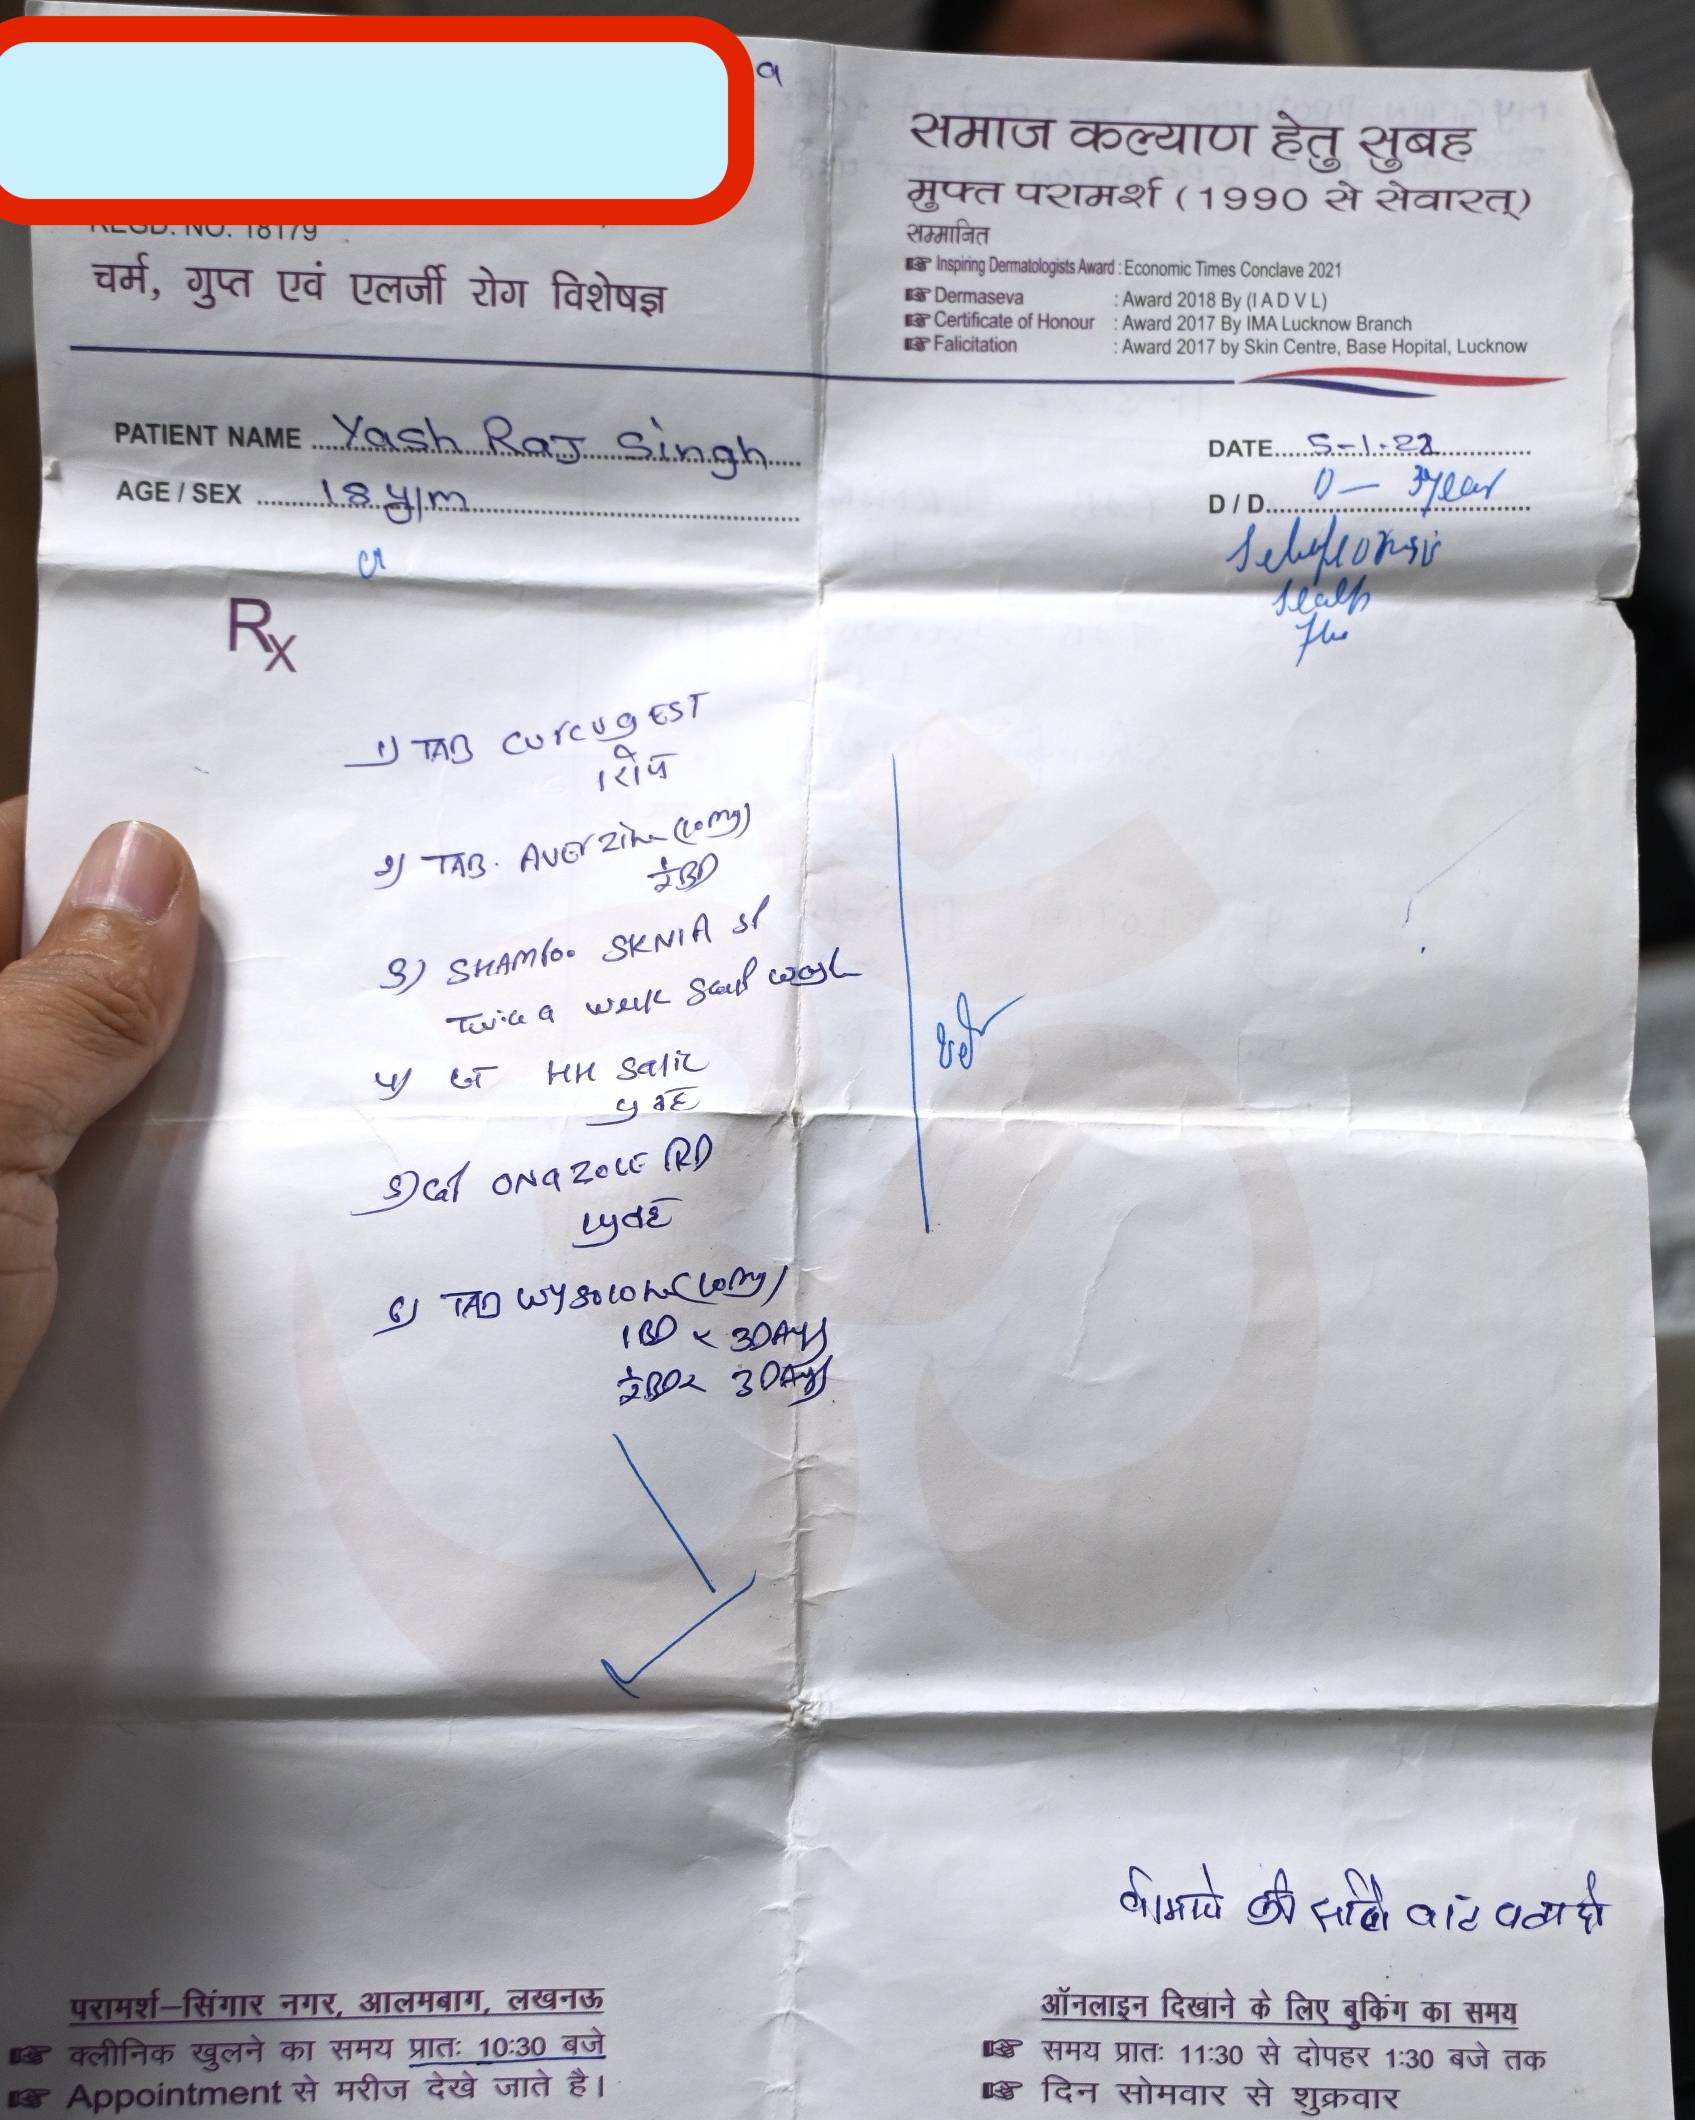 REGD. NO. 18179
चर्म, गुप्त एवं एलर्जी रोग विशेषज्ञ
समाज कल्याण हेतु सुबह
मुफ्त परामर्श (1990 से सेवारत्)
सम्मानित
Inspiring Dermatologists Award : Economic Times Conclave 2021
Dermaseva : Award 2018 By (I A D V L)
Certificate of Honour : Award 2017 By IMA Lucknow Branch
Falicitation : Award 2017 by Skin Centre, Base Hopital, Lucknow
PATIENT NAME Yash Raj Singh
AGE / SEX 18 y/m
DATE 5-1-22
D / D D — 3year
Scalp
Rx
1) TAB CurcugEST
1 रोज
2) TAB. AVErzine (10mg)
1/2 BD
3) SHAMPoo SKNIA
Twice a week Scalp wash
4) HH Salic
5) ONAZOLE RD
6) TAB Wysolone (10mg)
1 BD x 3DAYS
1/2 BD x 3DAYS
की
परामर्श–सिंगार नगर, आलमबाग, लखनऊ
क्लीनिक खुलने का समय प्रातः 10:30 बजे
Appointment से मरीज देखे जाते है।
ऑनलाइन दिखाने के लिए बुकिंग का समय
समय प्रातः 11:30 से दोपहर 1:30 बजे तक
दिन सोमवार से शुक्रवार